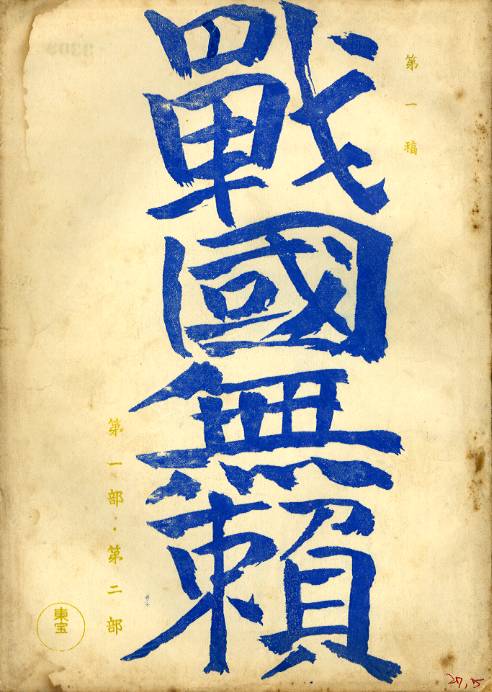 第一稿
戰國無賴
第一部・第二部
東宝
27.5